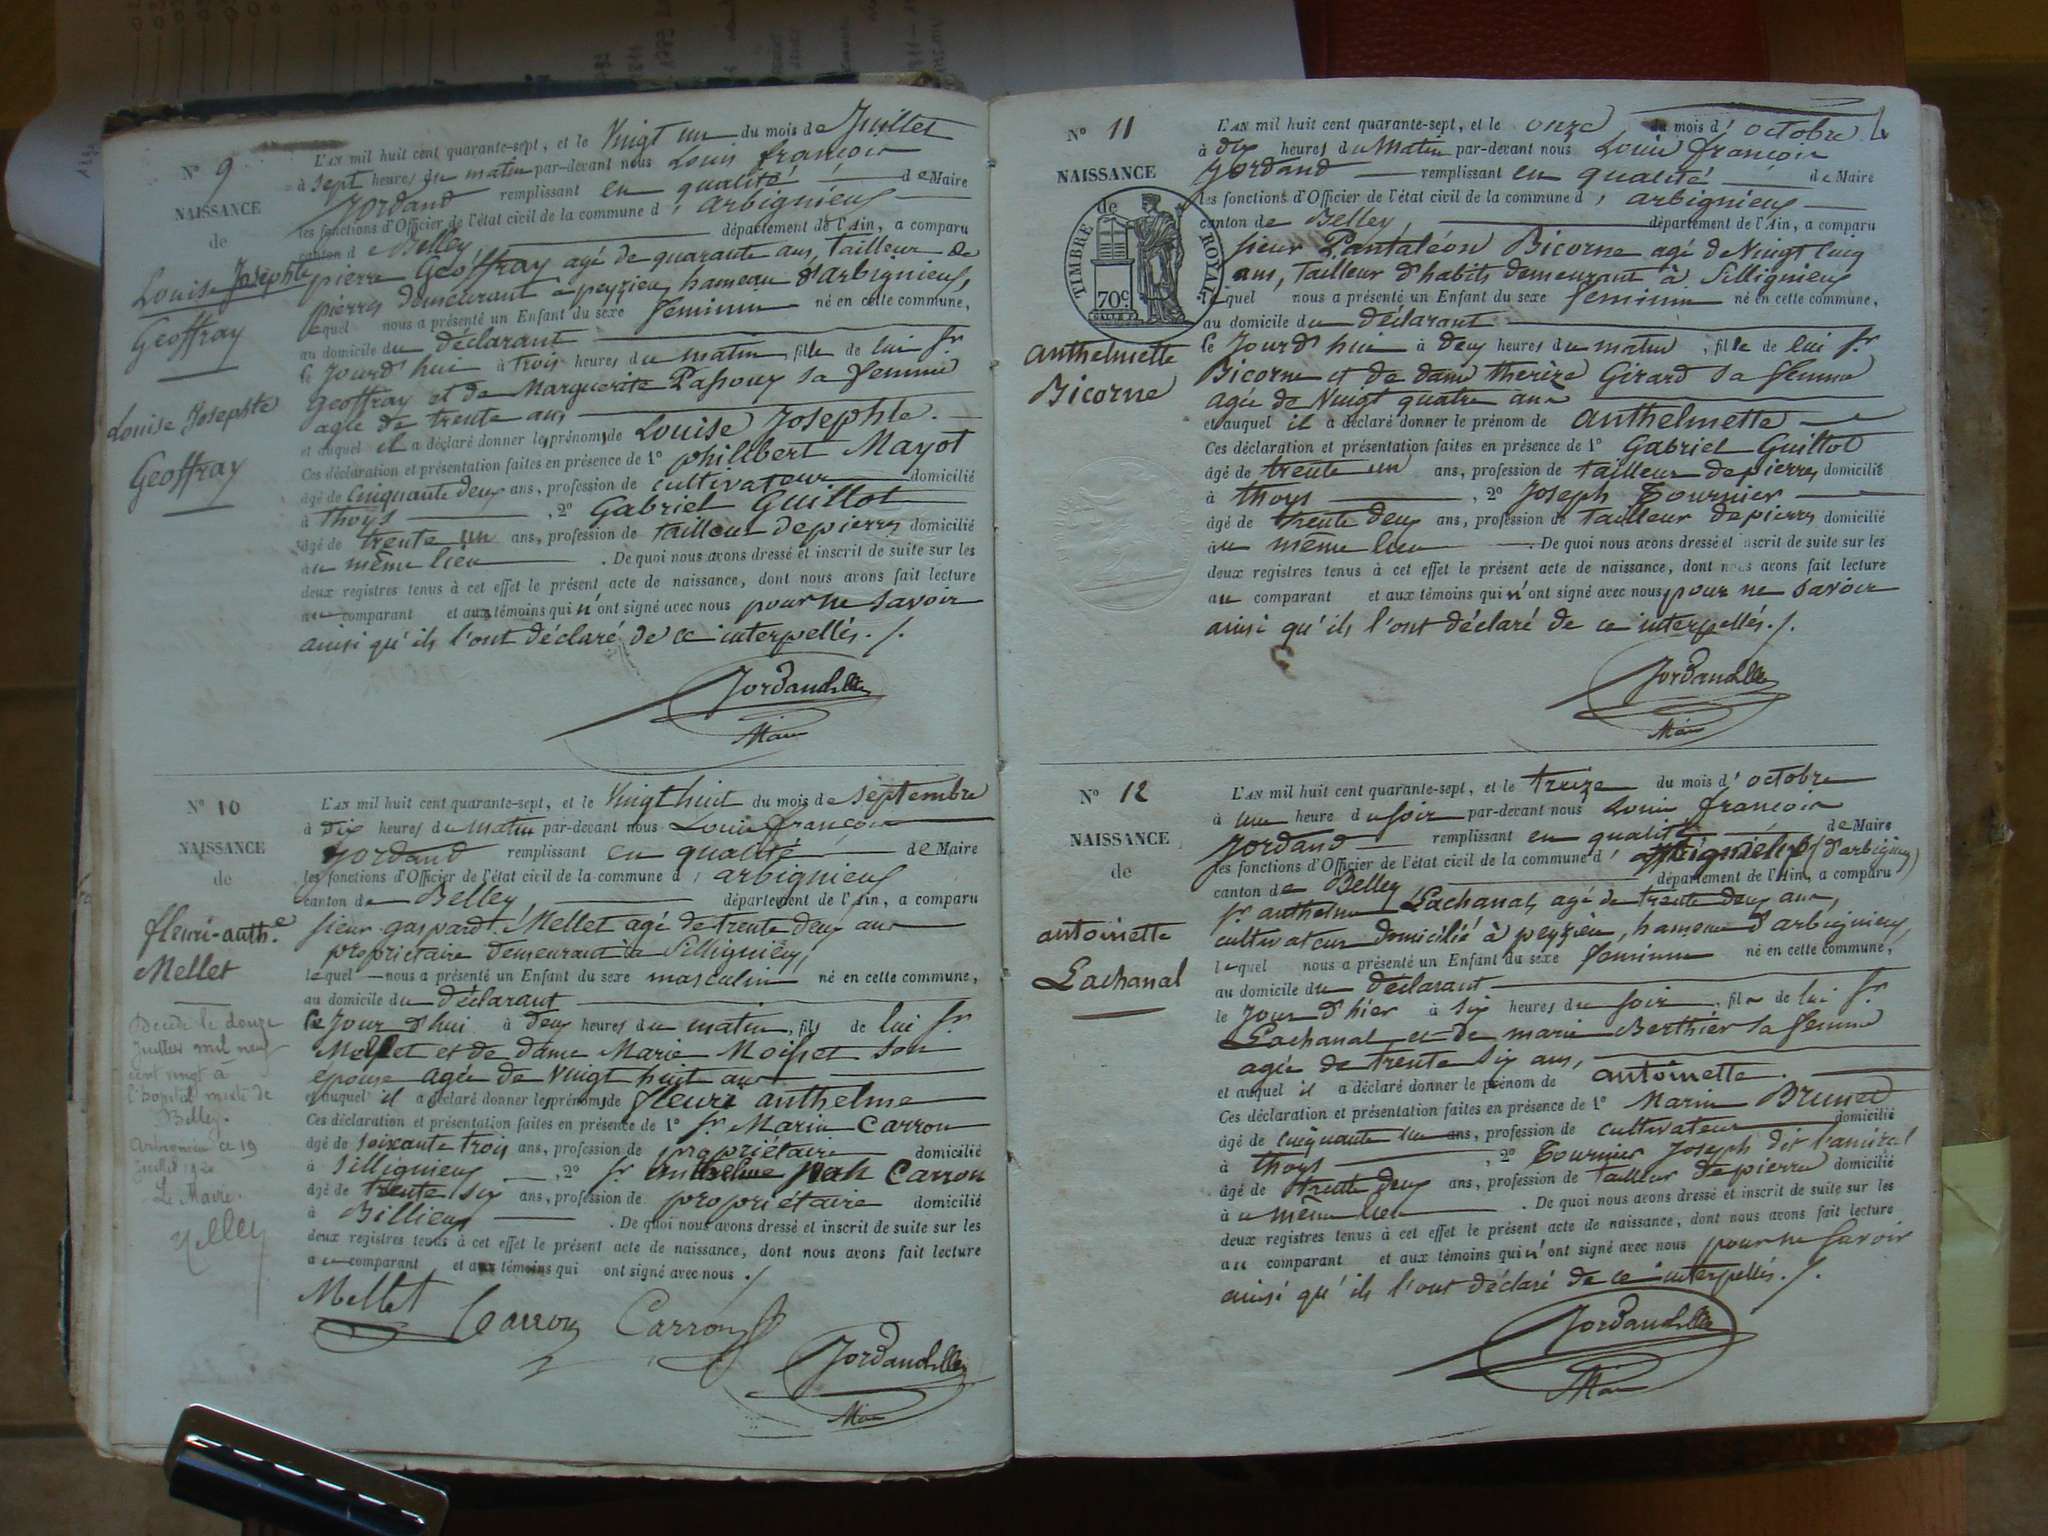 N° 9
NAISSANCE
de
Louise Josephte
Geoffray
Louise Josephte
Geoffray
L'AN mil huit cent quarante-sept, et le Vingt un du mois de Juillet
à sept heures du matin par-devant nous Louis françois
Jordand remplissant en qualité de Maire
les fonctions d'Officier de l'état civil de la commune d' arbignieux
canton de Belley département de l'Ain, a comparu
pierre Geoffray agé de quarante ans, tailleur de
pierres demeurant a peyzieu, hameau d'arbignieux,
lequel nous a présenté un Enfant du sexe feminin né en cette commune,
au domicile du déclarant
le Jourd'hui à trois heures du matin fille de lui Sr
Geoffray et de Marguerite Passoux sa femme
agée de trente ans,
et auquel il a déclaré donner les prénoms de Louise Josephte.
Ces déclaration et présentation faites en présence de 1° philibert Mayot
âgé de Cinquante deux ans, profession de cultivateur domicilié
à thoys, 2° Gabriel Guillot
âgé de trente un ans, profession de tailleur de pierres domicilié
au même lieu. De quoi nous avons dressé et inscrit de suite sur les
deux registres tenus à cet effet le présent acte de naissance, dont nous avons fait lecture
au comparant et aux témoins qui n'ont signé avec nous pour ne savoir
ainsi qu'ils l'ont déclaré de ce interpellés./.
Jordand
Maire
N° 10
NAISSANCE
de
fleuri-anth.e
Mellet
Décédé le douze
Juillet mil neuf
cent vingt à
l'hopital mixte de
Belley.
Arbignieu le 19
Juillet 1920
Le Maire.
L'AN mil huit cent quarante-sept, et le Vingt huit du mois de septembre
à Dix heures du matin par-devant nous Louis françois
Jordand remplissant en qualité de Maire
les fonctions d'Officier de l'état civil de la commune d' arbignieux
canton de Belley département de l'Ain, a comparu
sieur gaspard Mellet agé de trente deux ans
propriétaire demeurant à Sillignieux,
lequel nous a présenté un Enfant du sexe masculin né en cette commune,
au domicile du déclarant
le Jour d'hui à deux heures du matin, fils de lui Sr
Mellet et de dame Marie Moisset son
epouse agée de Vingt huit ans
et auquel il a déclaré donner les prénoms de fleuri anthelme
Ces déclaration et présentation faites en présence de 1° Sr Marin Carron
âgé de soixante trois ans, profession de propriétaire domicilié
à Sillignieux, 2° Sr anthelme Carron
âgé de trente six ans, profession de propriétaire domicilié
à Billieux. De quoi nous avons dressé et inscrit de suite sur les
deux registres tenus à cet effet le présent acte de naissance, dont nous avons fait lecture
au comparant et aux témoins qui ont signé avec nous./
Mellet Carron Carron
Jordand
Maire
N° 11
NAISSANCE
de
TIMBRE ROYAL
70c.
anthelmette
Bicorne
L'AN mil huit cent quarante-sept, et le onze du mois d'octobre
à dix heures du Matin par-devant nous Louis françois
Jordand remplissant en qualité de Maire
les fonctions d'Officier de l'état civil de la commune d' arbignieux
canton de Belley département de l'Ain, a comparu
sieur Pantaléon Bicorne agé de Vingt cinq
ans, tailleur d'habits demeurant à Sillignieux
lequel nous a présenté un Enfant du sexe feminin né en cette commune,
au domicile du déclarant
le Jourd'hui à deux heures du matin, fille de lui Sr
Bicorne et de dame therèze Girard sa femme
agée de Vingt quatre ans
et auquel il a déclaré donner le prénom de anthelmette
Ces déclaration et présentation faites en présence de 1° Gabriel Guillot
âgé de trente un ans, profession de tailleur de pierres domicilié
à thoys, 2° Joseph Tournier
âgé de trente deux ans, profession de tailleur de pierres domicilié
au même lieu. De quoi nous avons dressé et inscrit de suite sur les
deux registres tenus à cet effet le présent acte de naissance, dont nous avons fait lecture
au comparant et aux témoins qui n'ont signé avec nous pour ne savoir
ainsi qu'ils l'ont déclaré de ce interpellés./.
Jordand
Maire
N° 12
NAISSANCE
de
antoinette
Lachanal
L'AN mil huit cent quarante-sept, et le treize du mois d'octobre
à une heure du soir par-devant nous Louis françois
Jordand remplissant en qualité de Maire
les fonctions d'Officier de l'état civil de la commune d' arbignieux (d'arbignieux)
canton de Belley département de l'Ain, a comparu
Sr anthelme Lachanal, agé de trente deux ans,
cultivateur domicilié à peyzieu, hameau d'arbignieux,
lequel nous a présenté un Enfant du sexe feminin né en cette commune,
au domicile du déclarant
le Jour d'hier à six heures du soir, fille de lui Sr
Lachanal et de marie Berthier sa femme
agée de trente six ans,
et auquel il a déclaré donner le prénom de antoinette.
Ces déclaration et présentation faites en présence de 1° Marin Brunet
âgé de cinquante un ans, profession de cultivateur domicilié
à thoys, 2° Tournier Joseph dit l'amiral
âgé de trente deux ans, profession de tailleur de pierre domicilié
au même lieu. De quoi nous avons dressé et inscrit de suite sur les
deux registres tenus à cet effet le présent acte de naissance, dont nous avons fait lecture
au comparant et aux témoins qui n'ont signé avec nous pour ne savoir
ainsi qu'ils l'ont déclaré de ce interpellés./.
Jordand
Maire